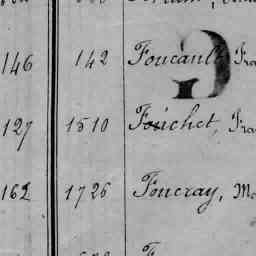 146 142 Foucault, Fra
127 1510 Fouchet, Fra
162 1726 Foucray, Ma